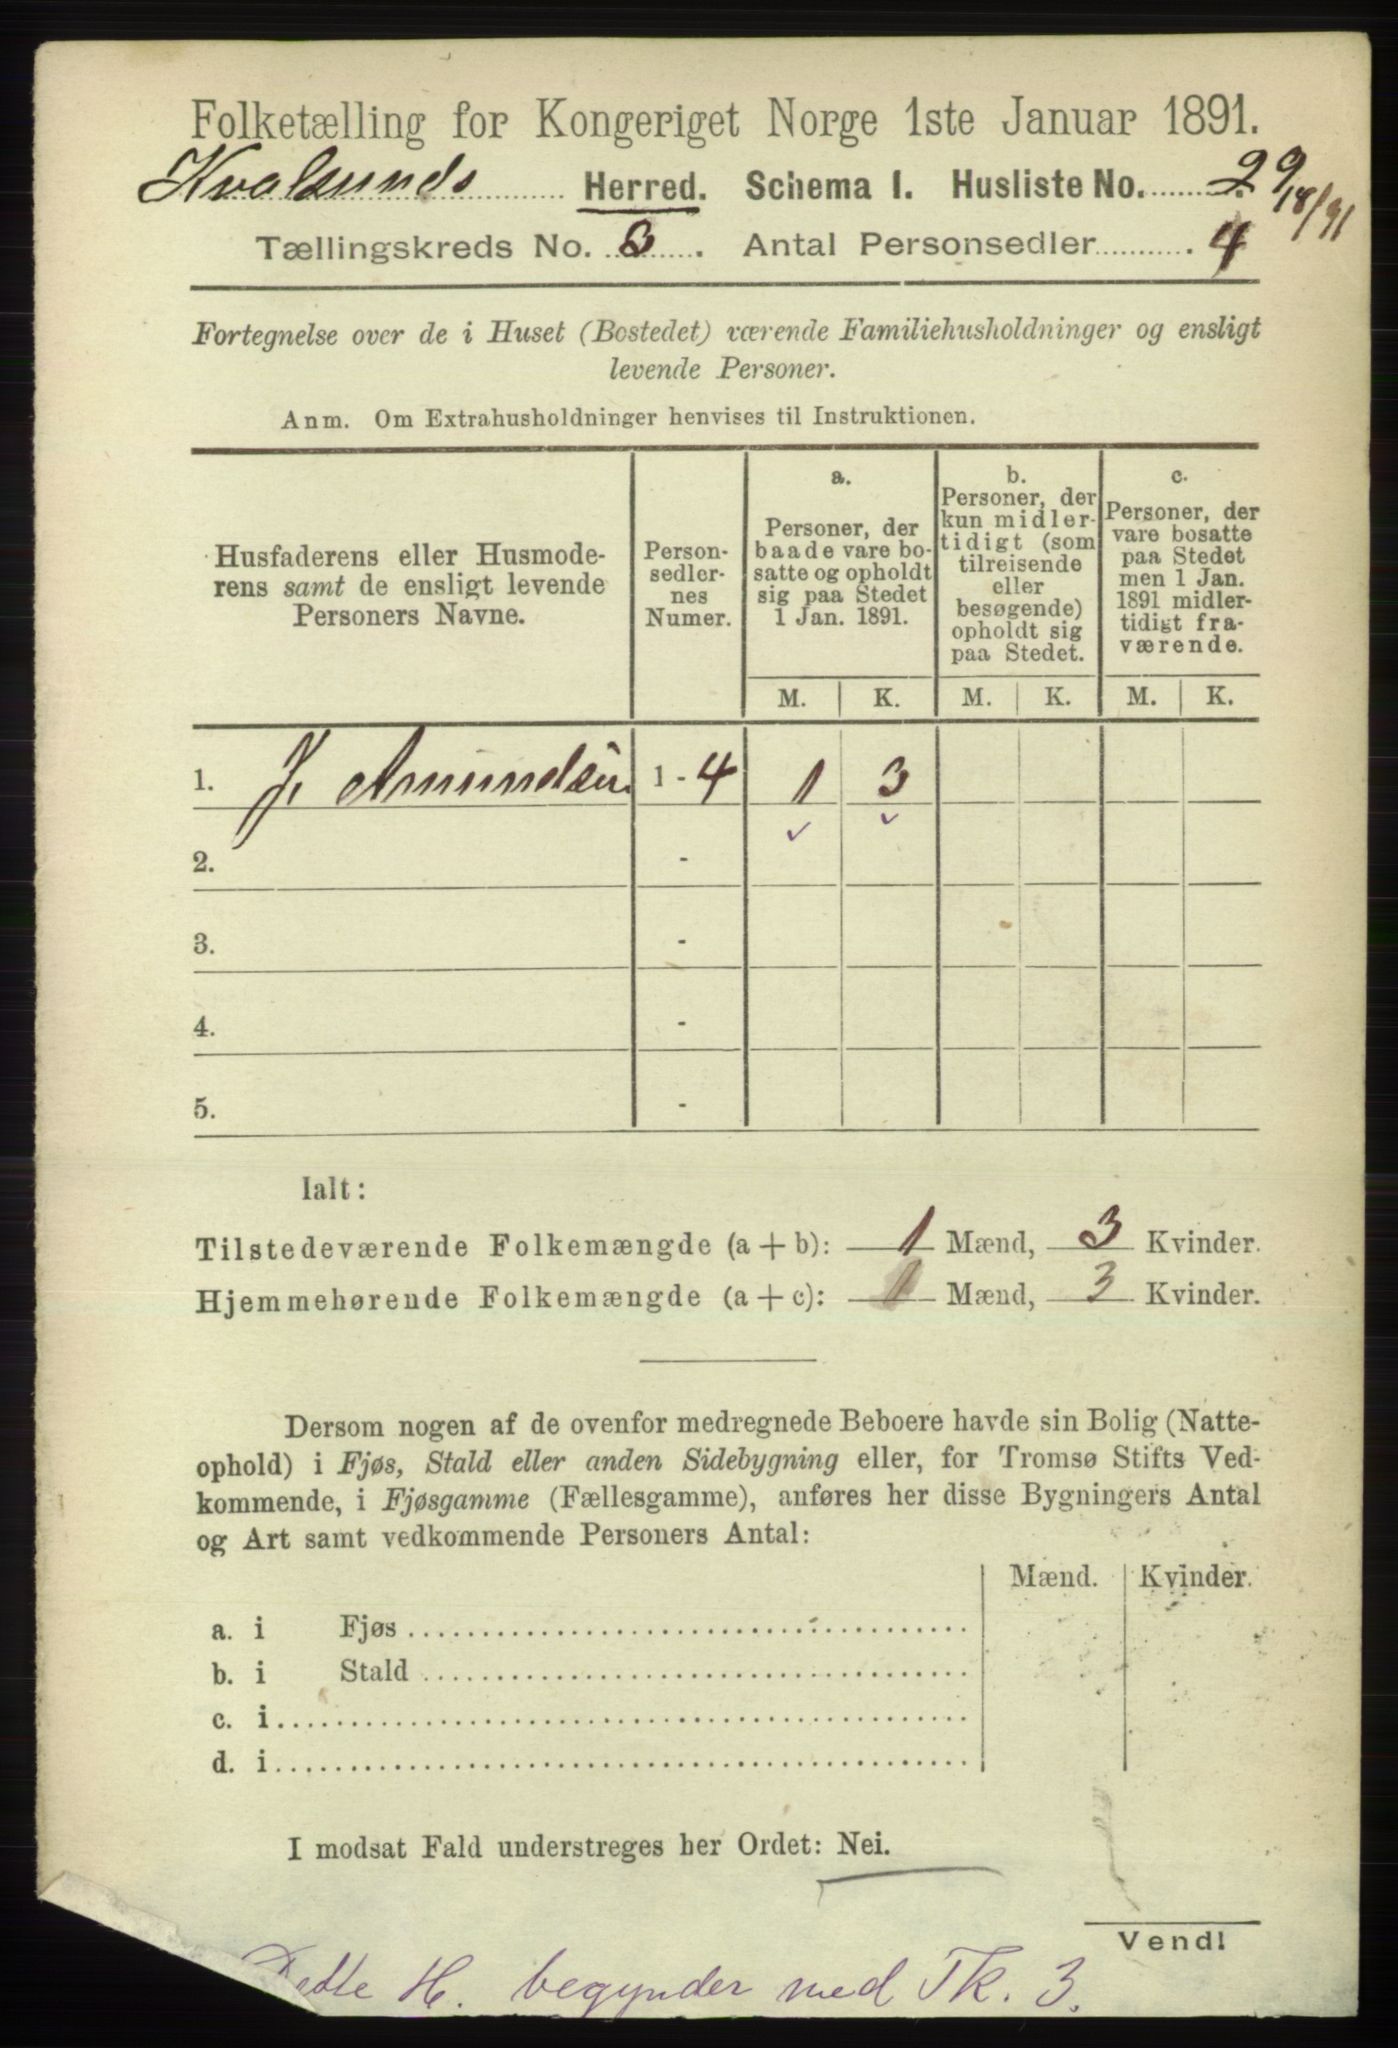 Folketælling for Kongeriget Norge 1ste Januar 1891.
Kvalsunds Herred. Schema I. Husliste No. 29
Tællingskreds No. 3. Antal Personsedler 4
Fortegnelse over de i Huset (Bostedet) værende Familiehusholdninger og ensligt
levende Personer.
Anm. Om Extrahusholdninger henvises til Instruktionen.
Husfaderens eller Husmode-
rens samt de ensligt levende
Personers Navne.
Person-
sedler-
nes
Numer.
a.
Personer, der
baade vare bo-
satte og opholdt
sig paa Stedet
1 Jan. 1891.
b.
Personer, der
kun midler-
tidigt (som
tilreisende
eller
besøgende)
opholdt sig
paa Stedet.
c.
Personer, der
vare bosatte
paa Stedet
men 1 Jan.
1891 midler-
tidigt fra-
værende.
M. K. M. K. M. K.
1. J. Amundsen 1 - 4 1 3
2. -
3. -
4. -
5. -
Ialt:
Tilstedeværende Folkemængde (a + b): 1 Mænd, 3 Kvinder.
Hjemmehørende Folkemængde (a + c): 1 Mænd, 3 Kvinder.
Dersom nogen af de ovenfor medregnede Beboere havde sin Bolig (Natte-
ophold) i Fjøs, Stald eller anden Sidebygning eller, for Tromsø Stifts Ved-
kommende, i Fjøsgamme (Fællesgamme), anføres her disse Bygningers Antal
og Art samt vedkommende Personers Antal:
Mænd. Kvinder.
a. i Fjøs
b. i Stald
c. i
d. i
I modsat Fald understreges her Ordet: Nei.
Vend!
Dette H. begynder med Tk. 3.